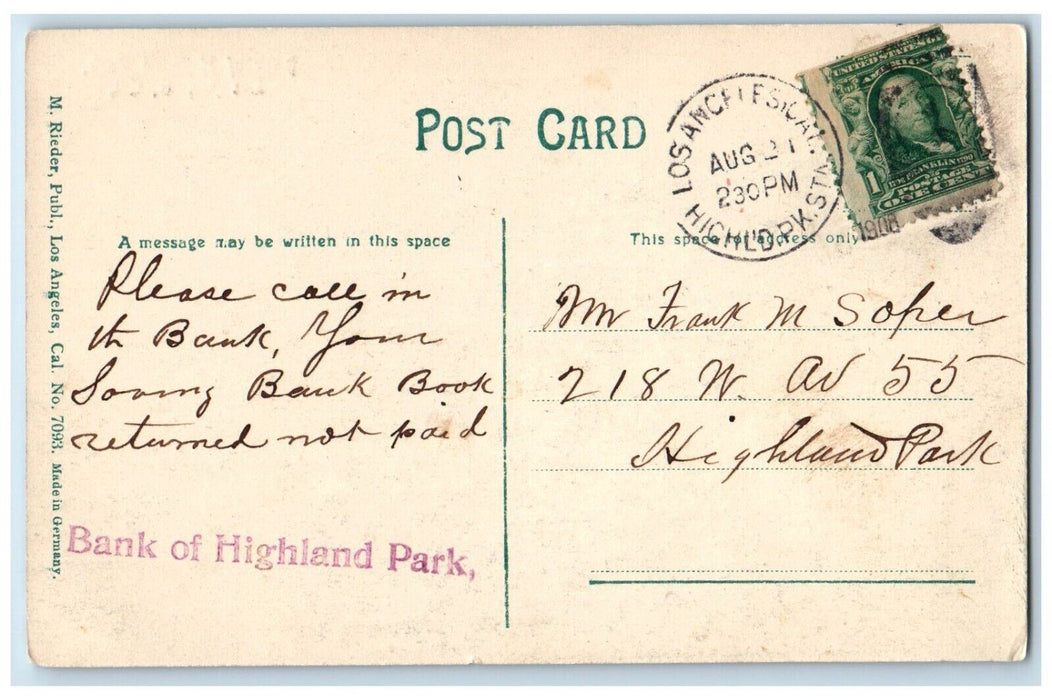 POST CARD
M. Rieder, Publ., Los Angeles, Cal. No. 7093. Made in Germany.
LOS ANGELES, CAL.
AUG 21
230 PM
HIGHL'D. PK. STN.
1908
UNITED STATES OF
AMERICA
FRANKLIN
1
POSTAGE
ONE CENT
A message may be written in this space
This space for address only
Please call in
th Bank, Your
Saving Bank Book
returned not paid
Bank of Highland Park,
Mr Frank M Soper
218 W. Av 55
Highland Park